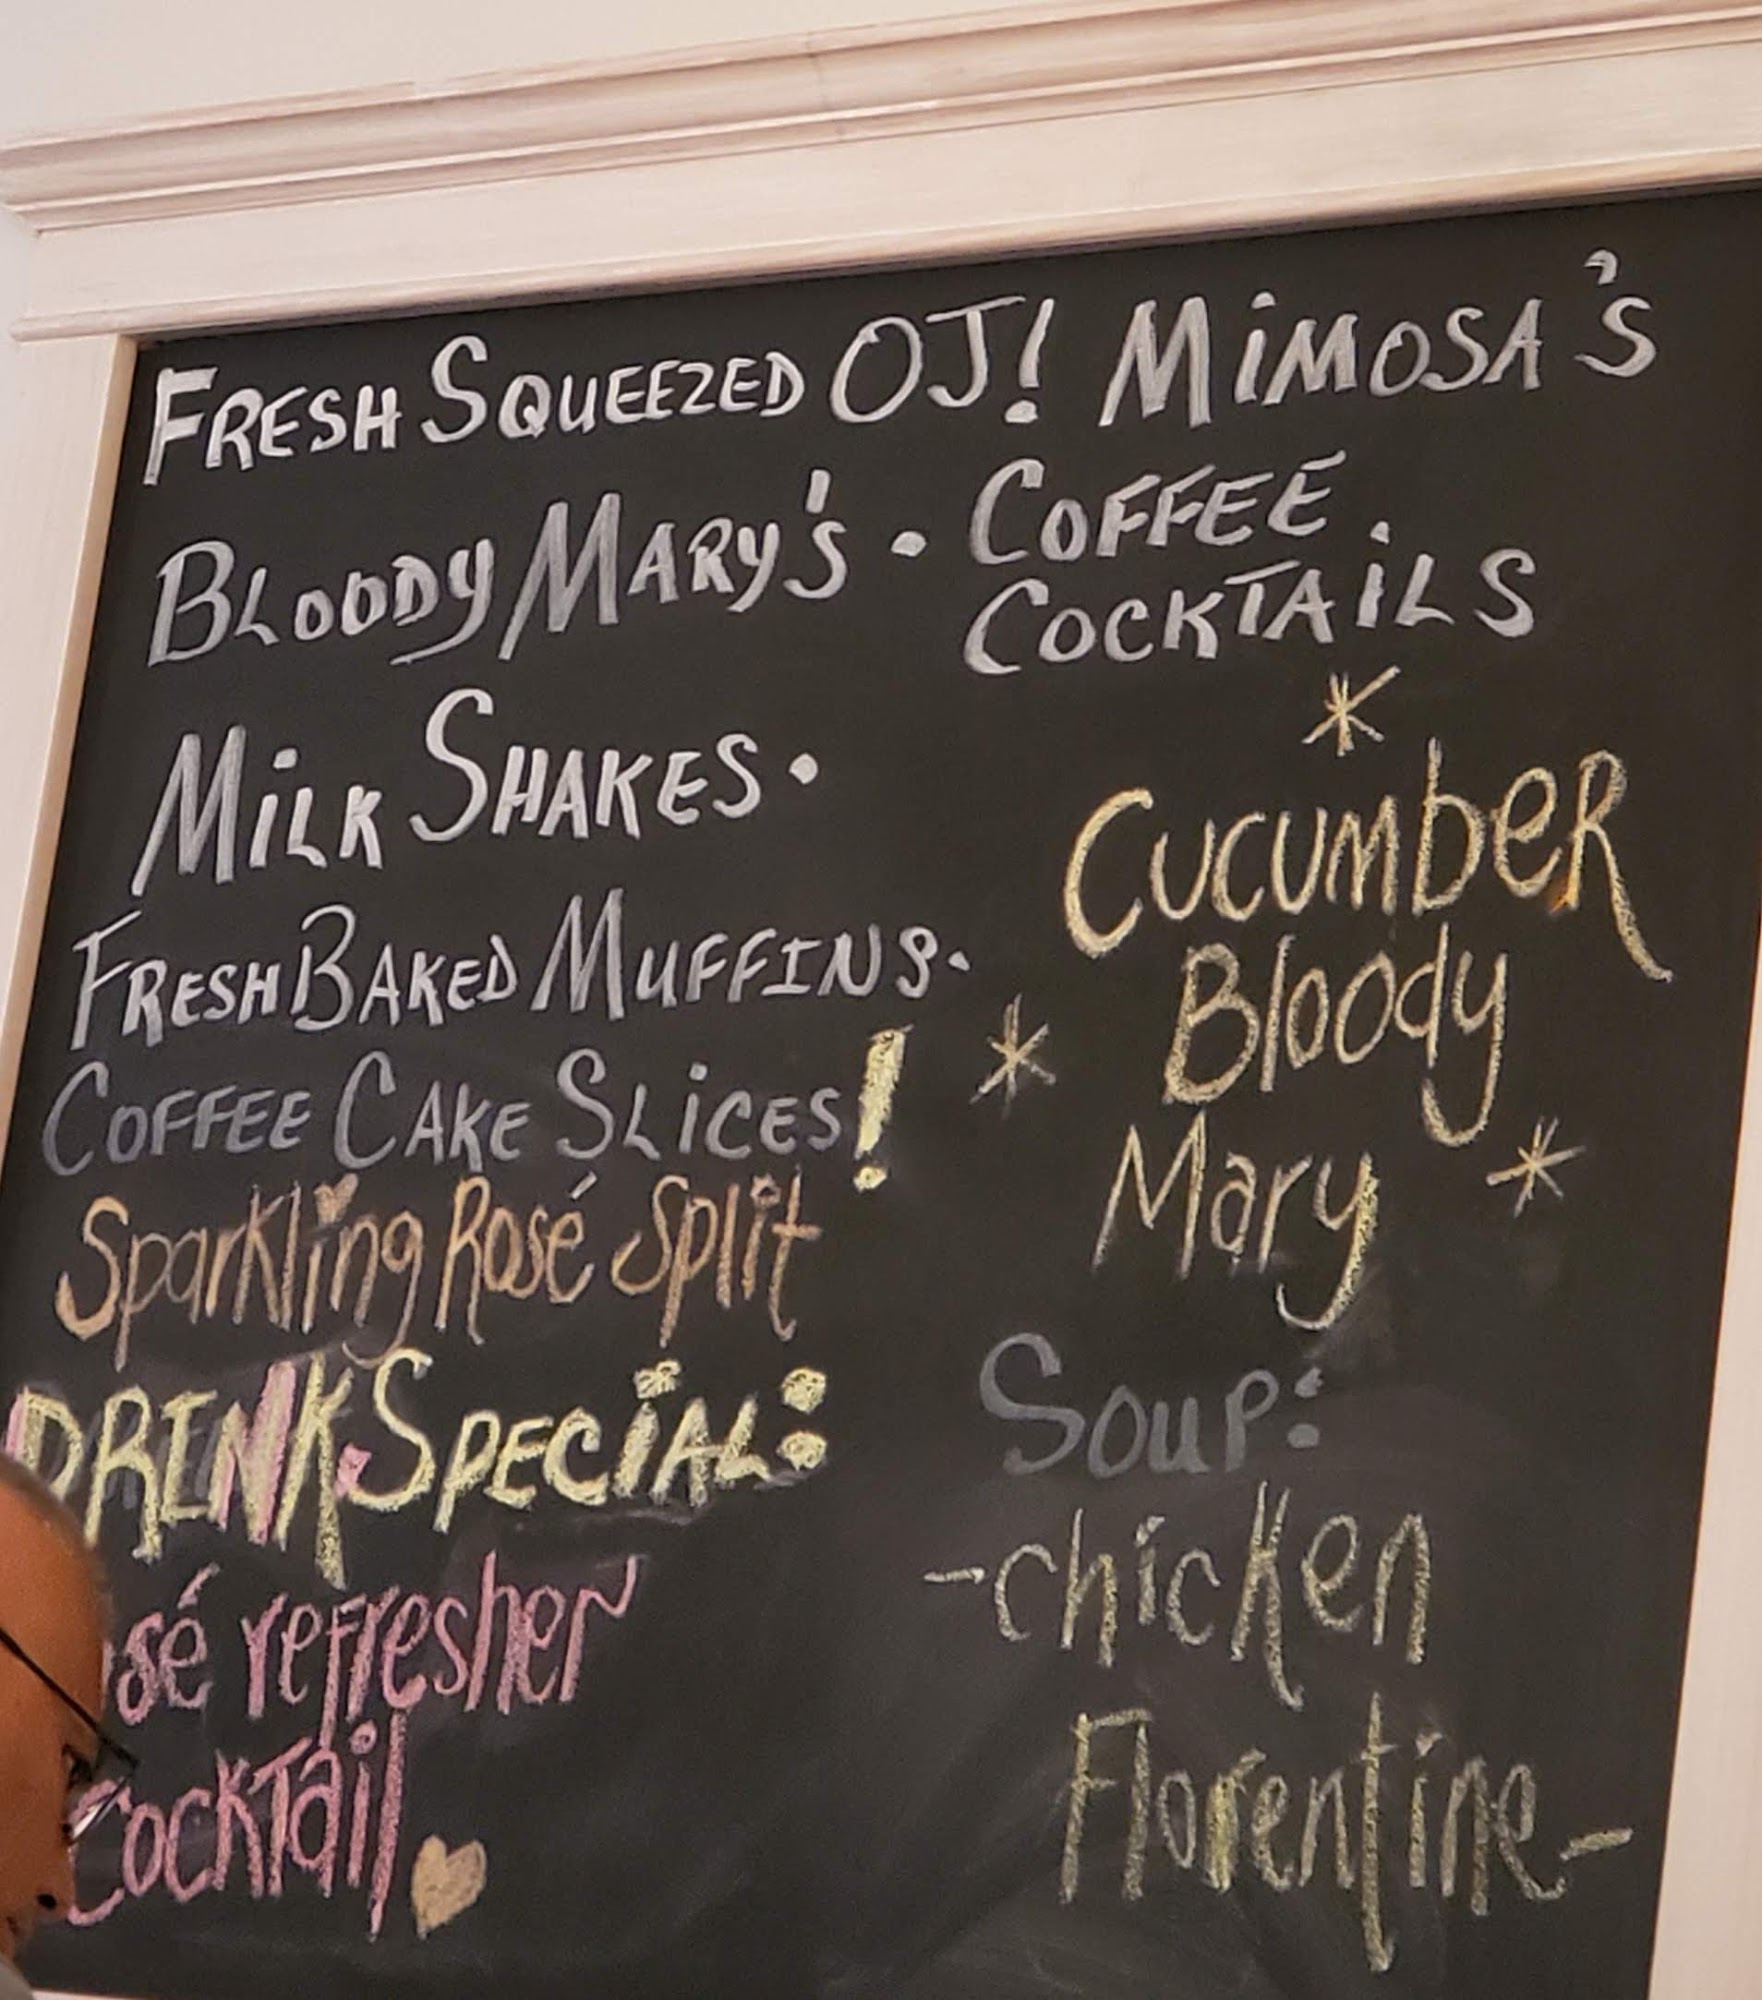 FRESH SQUEEZED OJ! MiMOSA'S
BLOODY MARY'S • COFFEE
COCKTAiLS
MiLK SHAKES •
FRESH BAKED MUFFINS •
COFFEE CAKE SLiCES!
Sparkling Rosé Split
DRINK SPECiAL:
sé refresher
cocktail
* CUCUMbeR
* Bloody
Mary *
SOUP:
-chicken
Florentine-